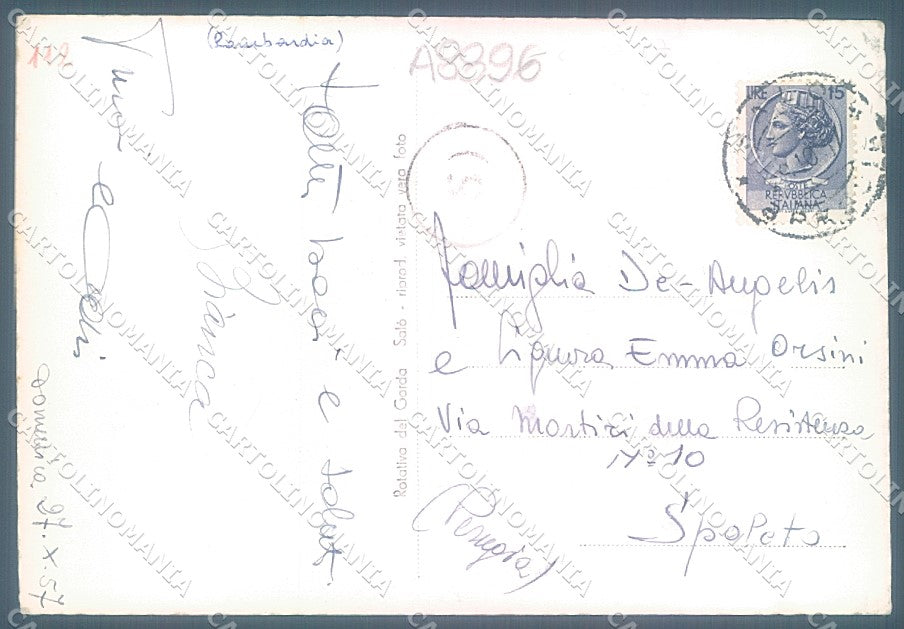 119
(Lombardia)
A8396
Tanti baci e saluti
Bianca
e
Domenica 27.X.57
Rotativa del Garda Salò - riprod. vietata vera foto
LIRE 15
POSTE
REPVBBLICA
ITALIANA
Famiglia De-Angelis
e Signora Emma Orsini
Via Martiri della Resistenza
Nº 10
Spoleto
(Perugia)
CARTOLINOMANIA